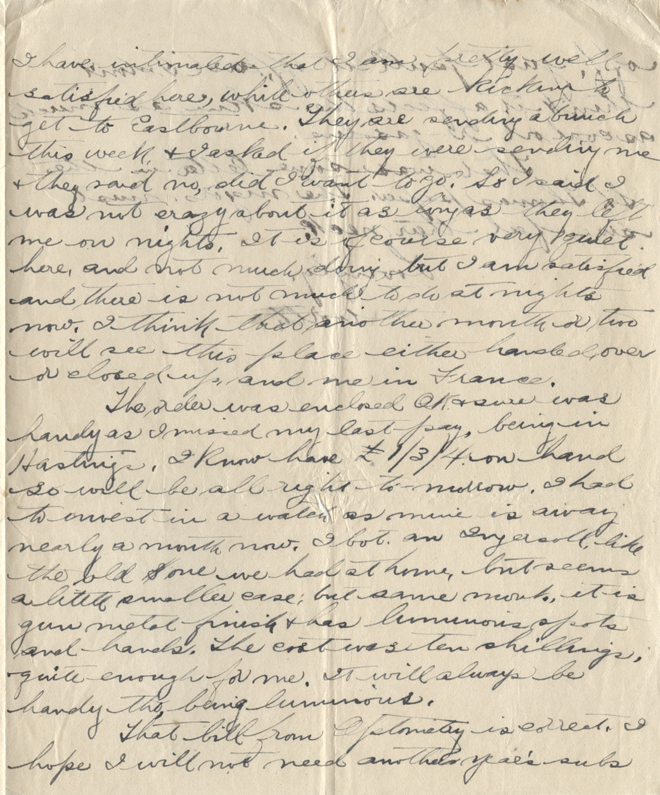 I have intimated that I am pretty well
satisfied here, while others are kickin' to
get to Eastbourne. They are sending a bunch
this week, & I asked if they were sending me
& they said no, did I want to go. So I said I
was not crazy about it as long as they left
me on nights. It is of course very quiet
here, and not much doing but I am satisfied
and there is not much to do at nights
now. I think that another month or two
will see this place either handed over
or closed up, and me in France.
The order was enclosed OK & sure was
handy as I missed my last pay, being in
Hastings. I know have £1/3/4 on hand
so will be all right to-morrow. I had
to invest in a watch as mine is away
nearly a month now. I bot. an Ingersoll, like
the old one we had at home, but seems
a little smaller case; but same monk, it is
gun metal finish & has luminous spots
and hands. The cost was ten shillings,
quite enough for me. It will always be
handy tho, being luminous.
That bill from Optometry is correct. I
hope I will not need another year's subs